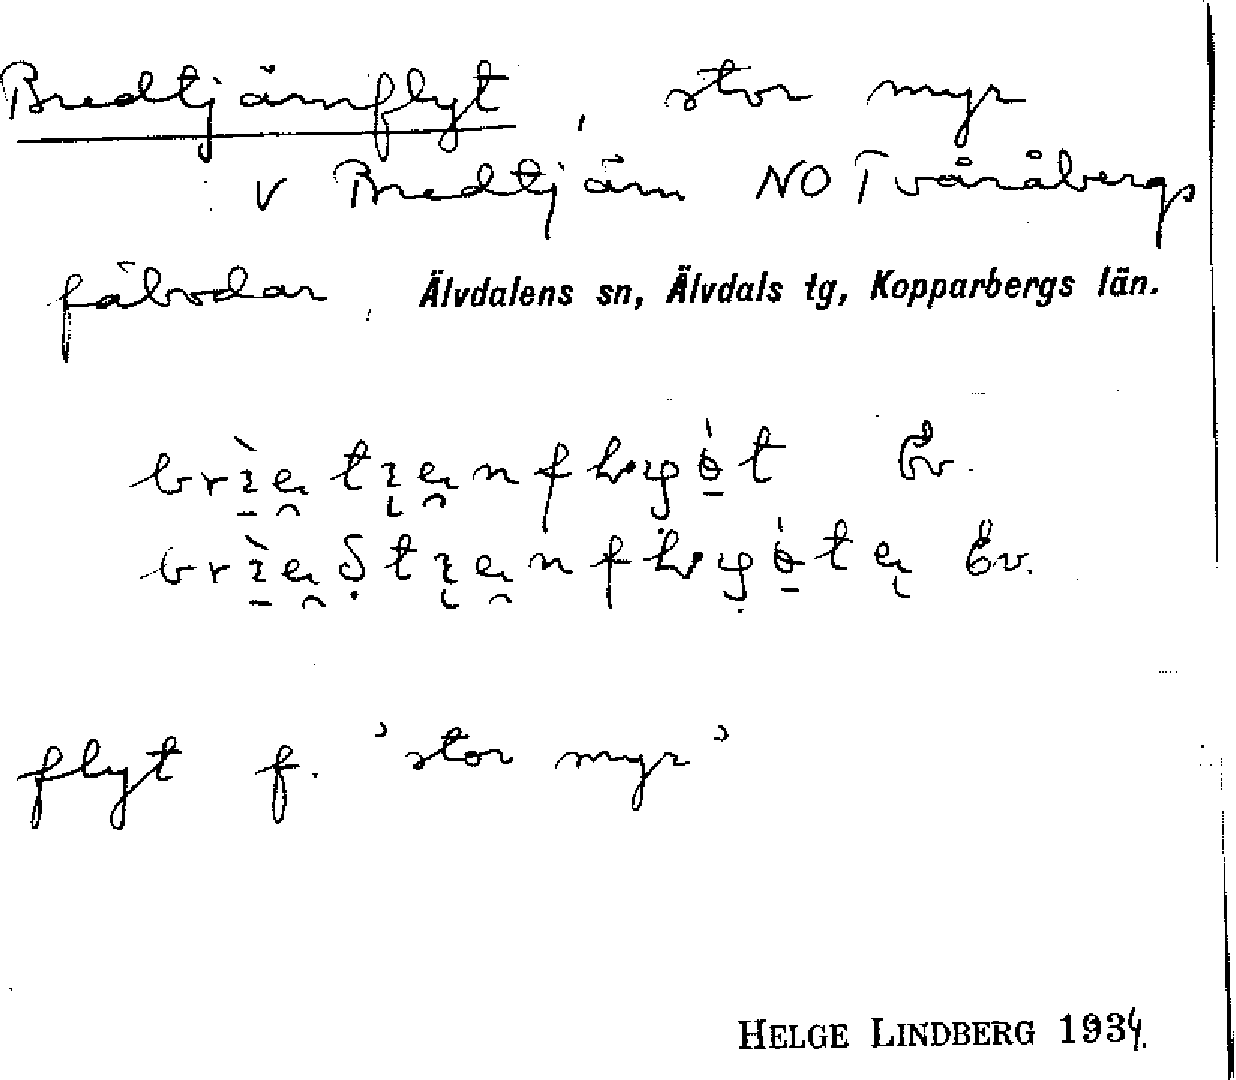 Bredtjärnflyt, stor myr
V Bredtjärn NO Tvåråbergs
fäbodar, Älvdalens sn, Älvdals tg, Kopparbergs län.
Ev.
Ev.
flyt f. 'stor myr'
HELGE LINDBERG 1934.